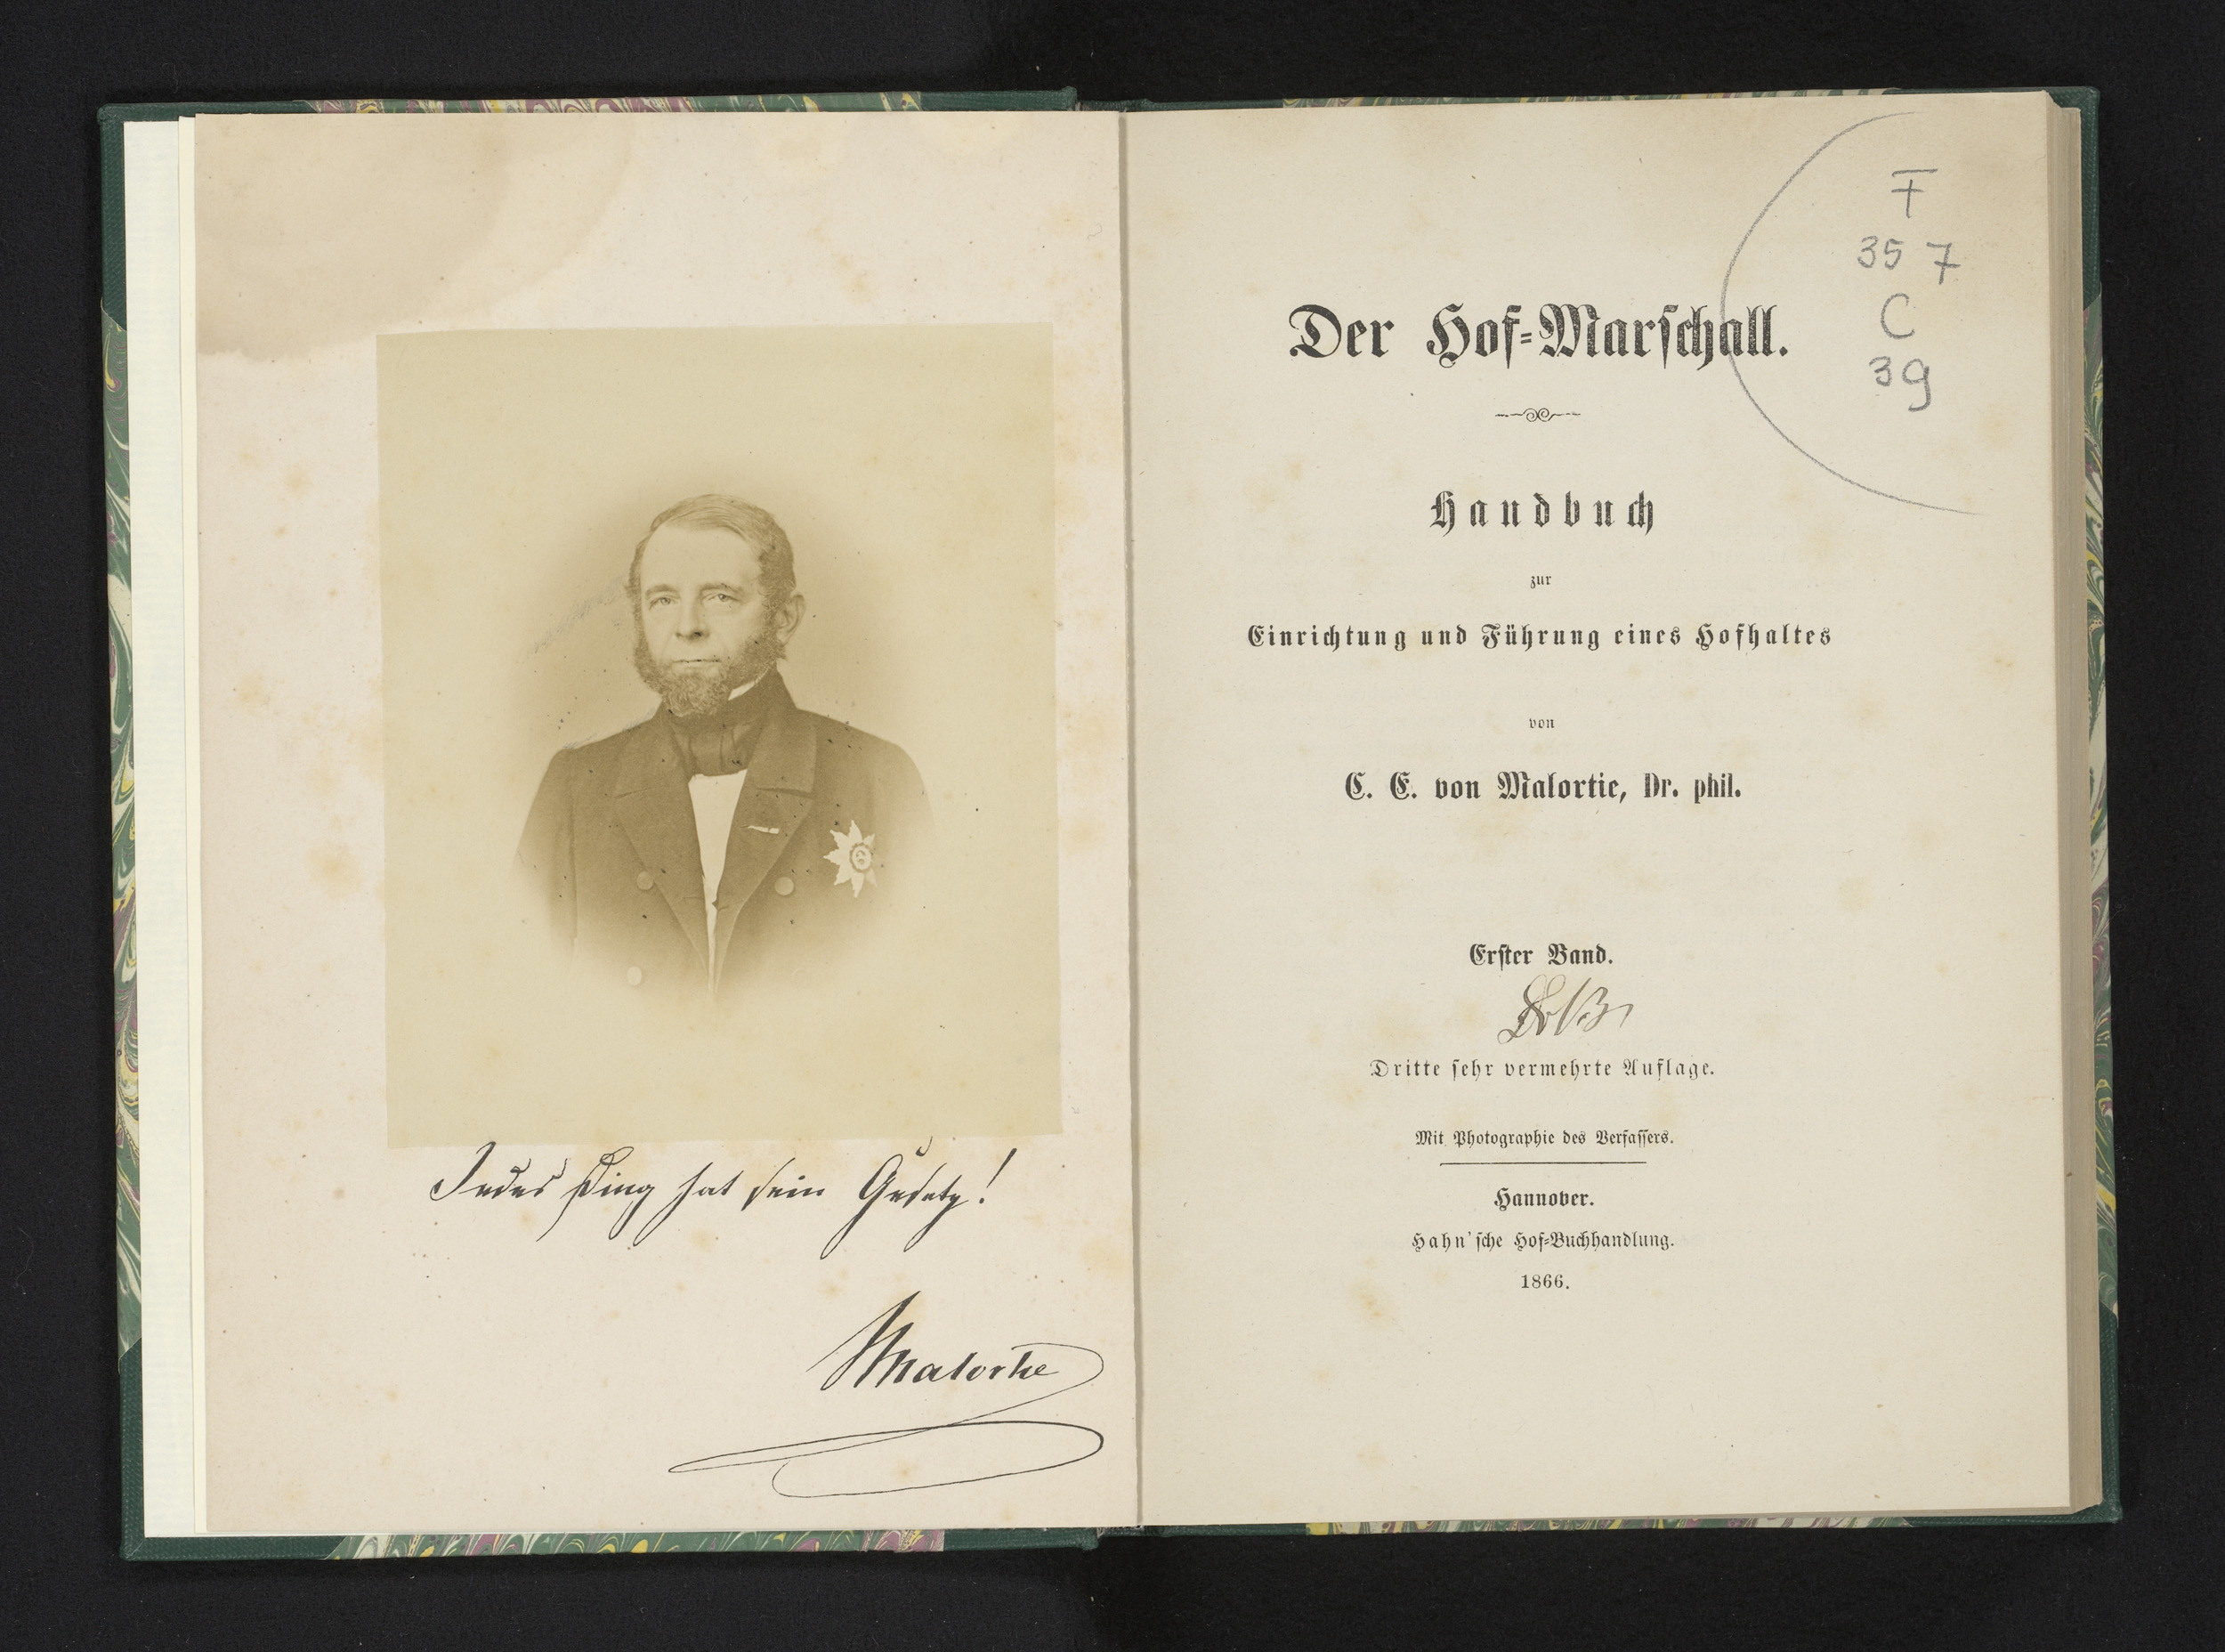 Jedes Ding hat sein Gesetz!
Malortie
F
357
C
39
Der Hof-Marſchall.
Handbuch
zur
Einrichtung und Führung eines Hofhaltes
von
C. E. von Malortie, Dr. phil.
Erſter Band.
Dritte ſehr vermehrte Auflage.
Mit Photographie des Verfaſſers.
Hannover.
Hahn'ſche Hof-Buchhandlung.
1866.